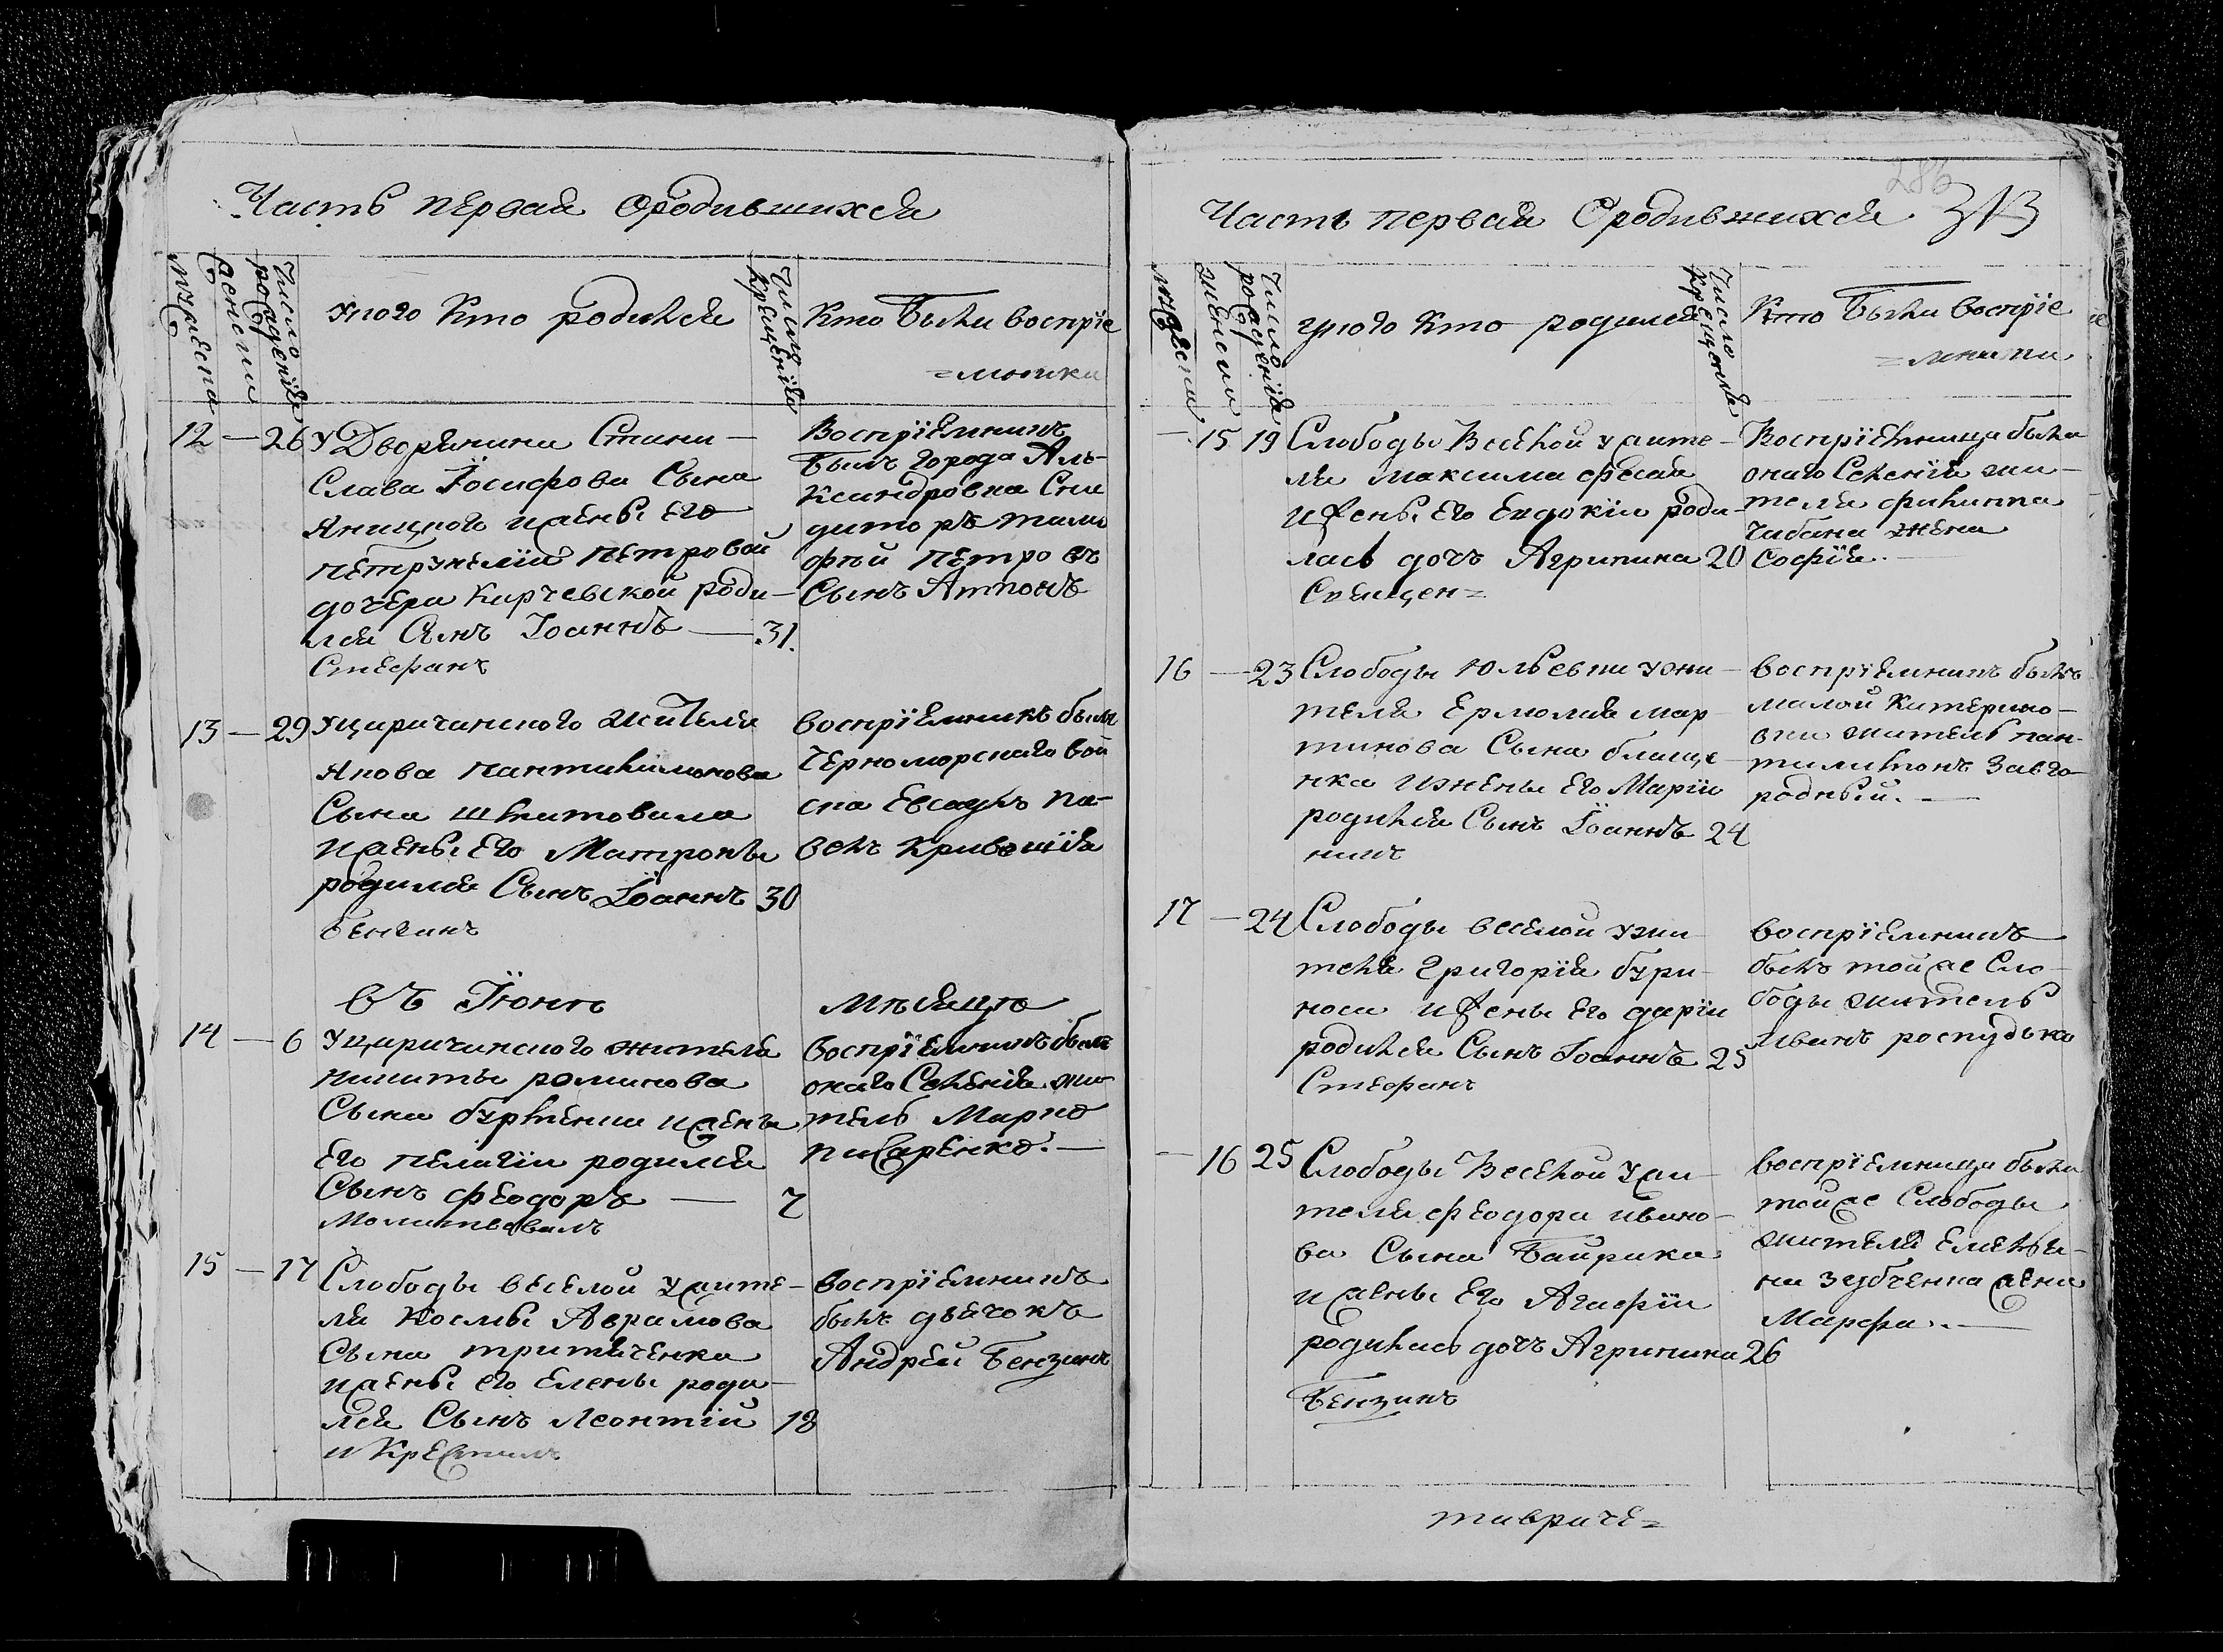 Часть первая Ородившихся
мужеска
женски
Число рождения
Укого Кто родился
Число крещения
Кто Были воспрїе
=мники
12 — 26 У Дворянина Стани—
слава Їосифова Сына
Яницкого ижены Его
Петрунелїи Петровой
дочери Кирчевской роди—
лся Сынъ Їоаннъ — 31.
Стефанъ
Воспрїемникъ
Былъ города Аль-
Петровъ
Сынъ Антонъ
13 — 29 Ущиричинского жителя
Якова Пантилимонова
Сына Шкитовала
ижены Его Матроны
родился Сынъ Їоаннъ 30
бензинъ
воспрїемникъ былъ
Черноморскаго вой
ска Есаулъ Па-
велъ Кривошїя
въ Їюнѣ мѣсяцѣ
14 — 6 Ущиричинского жителя
никиты романова
Сына ижены
Его пелагїи родился
Сынъ феодоръ — 7
Молитвовалъ
воспрїемникъ былъ
онаго Селенїя жи-
тель Марко
писаренко. —
15 — 17 Слободы веселой ужите-
ля Космы Аврамова
Сына тритяченка
ижены его Елены роди-
лся Сынъ Леонтїй 18
и Крестилъ
воспрїемникъ
былъ дьячокъ
Андрей Бензинъ
286
313
Часть первая Ородившихся
мужеска
женски
Число рождения
укого Кто родился
Число крещения
Кто Были воспрїе
=мники
— 15 19 Слободы Веселой ужите-
ля Максима
иженѣ его Евдокїи роди-
лась дочь Агрипина 20
Священ=
Воспрїемница была
онаго Селенїя жи-
теля филипа
Чабана жена
Софїя. —
16 — 23 Слободы Юльевки ужи-
теля Ермолая мар-
тинова Сына блаще-
нка ижены его Марїи
родился Сынъ Їоаннъ 24
никъ
воспрїемникъ былъ
малой Катерино-
вки житель пан-
тилимонъ Завго-
родный. —
17 — 24 Слободы веселой ужи-
теля григорїя бури-
носа ижены его дарїи
родился Сынъ Їоаннъ 25
Стефанъ
воспрїемникъ
былъ тойже Сло-
боды житель
Иванъ роспудько
— 16 25 Слободы Веселой ужи-
теля феодора ивано-
ва Сына Байрика
ижены его Агафїи
родилась дочь Агрипина 26
Бензинъ
воспрїемница была
тойже Слободы
жителя Емелья-
на Зубченка жена
Марфа. —
тавриче=